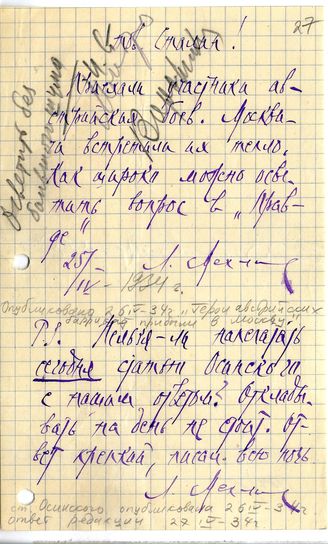 27
тов Сталин!
Приехали участники ав-
стрийских боев. Москва-
чи встречали их тепло.
Как широко можно осве-
тить вопрос в „Прав-
де"
25/IV - 1934 г.
Л. Мехлис
Осветить без
Опубликовано 26 IV-34г „Герои австрийских
баррикад прибыли в Москву"
Нельзя-ли напечатать
сегодня статью Осинского
с нашим ответом? Отклады-
вать на день не стоит. От-
вет крепкий, писали всю ночь
Л. Мехлис
ст. Осинского опубликована 26 IV-34г
ответ редакции 27 IV-34г